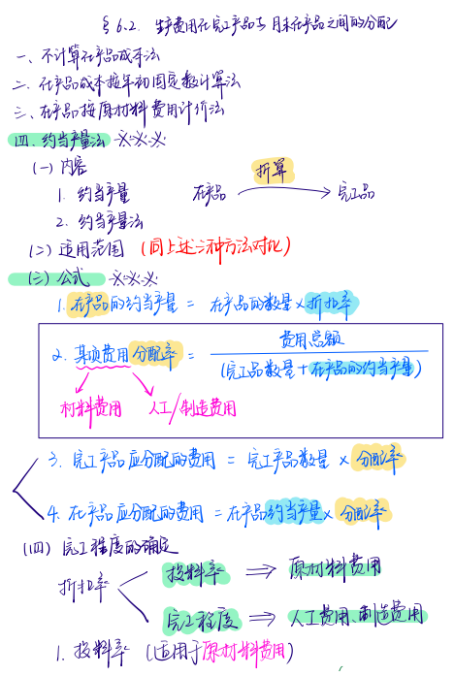 §6.2. 生产费用在完工产品与月末在产品之间的分配
一、不计算在产品成本法
二、在产品成本按年初固定数计算法
三、在产品按原材料费用计价法
四、约当产量法 ※※※
(一) 内容
折算
1. 约当产量 在产品 完工品
2. 约当产量法
(二) 适用范围 (同上述三种方法对比)
(三) 公式 ※※※
1. 在产品的约当产量 = 在产品的数量 × 折扣率
费用总额
2. 某项费用分配率 =
(完工品数量 + 在产品的约当产量)
材料费用 人工/制造费用
3. 完工产品应分配的费用 = 完工产品数量 × 分配率
4. 在产品应分配的费用 = 在产品约当产量 × 分配率
(四) 完工程度的确定
投料率 ⇒ 原材料费用
折扣率
完工程度 ⇒ 人工费用、制造费用
1. 投料率 (适用于原材料费用)